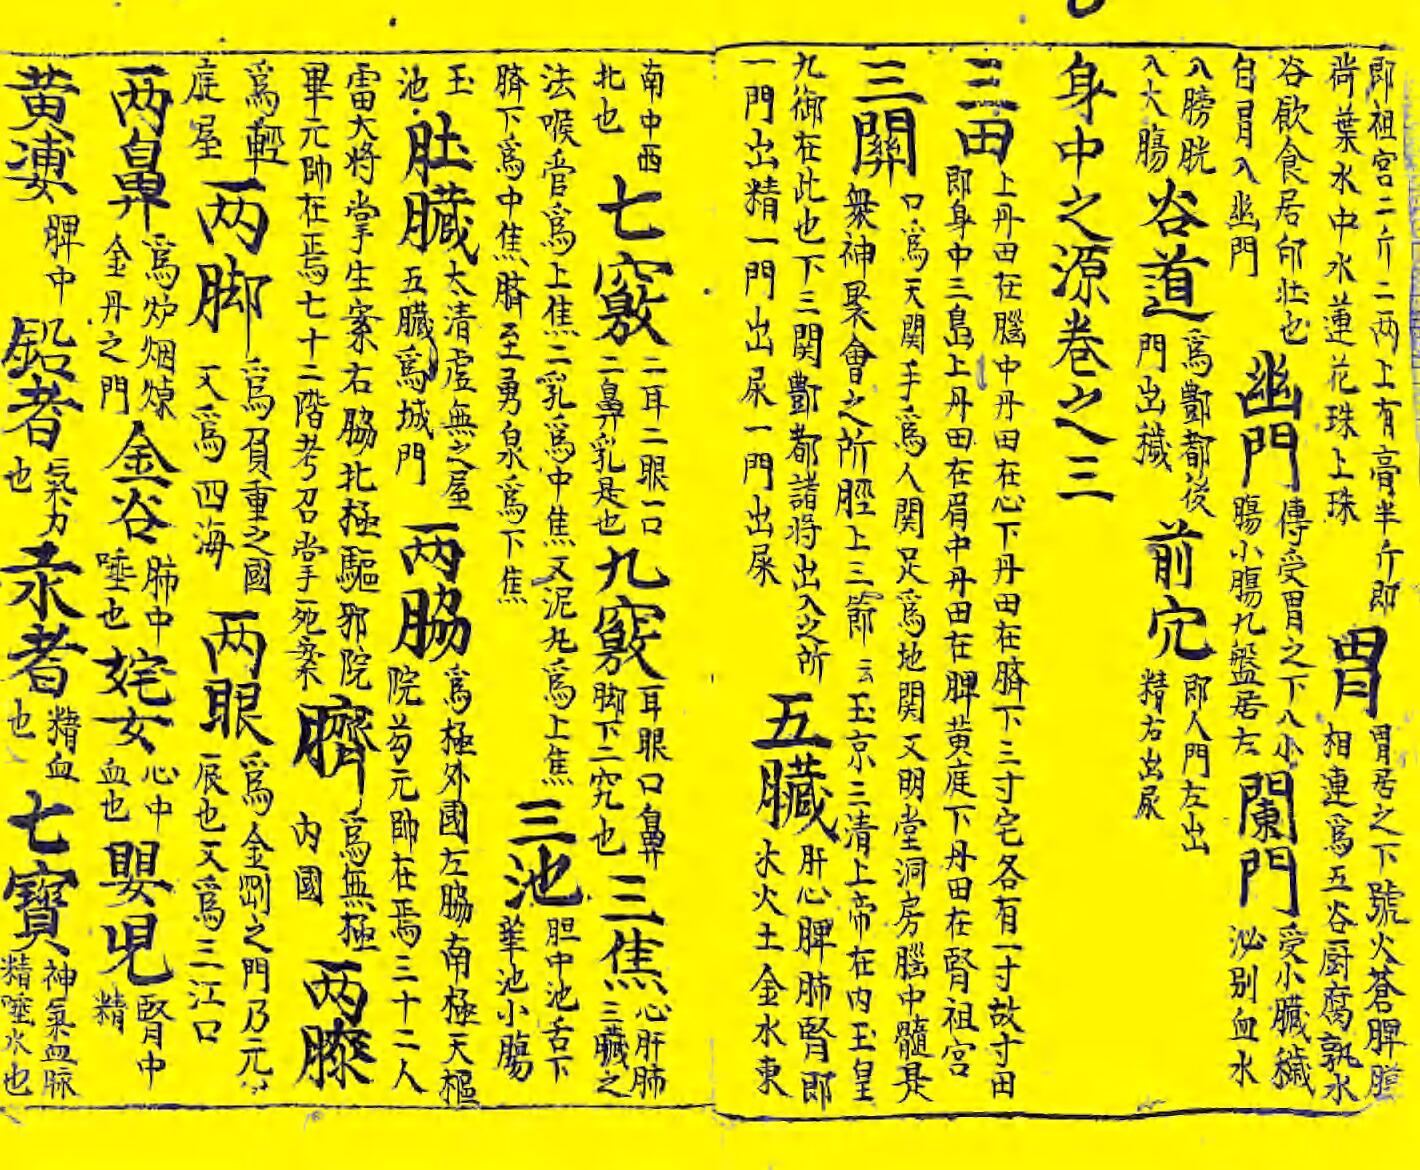 即祖宮二斤二两上有膏半斤即荷葉水中水蓮花珠上珠胃胃居之下號火蒼脾膽相連爲五谷厨腐孰水
谷飲食居卻壮也自胃入幽門幽門傳受胃之下八小腸小腸九盤居左闌門受小臟穢泌别血水
入膀胱入大腸谷道爲酆都後門出穢前穴即人門左出精右出尿
身中之源卷之三
三田上丹田在腦中丹田在心下丹田在臍下三寸宅各有一寸故寸田即身中三島上丹田在眉中丹田在脾黄庭下丹田在腎祖宮
三關口爲天関手爲人関足爲地関又明堂洞房腦中髓是衆神聚會之所脛上三節云玉京三清上帝在内玉皇
九御在此也下三関酆都諸将出入之所一門出精一門出尿一門出尿五臟肝心脾肺腎即木火土金水東
南中西北也七竅二耳二眼一口二鼻乳是也九竅耳眼口鼻脚下二穴也三焦心肝肺三臟之
法喉管爲上焦二乳爲中焦又泥丸爲上焦臍下爲中焦臍至勇泉爲下焦三池胆中池舌下華池小腸
玉池肚臟太清虚無之屋五臟爲城門两脇爲極外國左脇南極天樞院芶元帥在焉三十二人
雷大将掌生案右脇北極驅邪院畢元帥在焉七十二階考召掌死案臍爲無極内國两膝
爲輕庭屋两脚爲負重之國又爲四海两眼爲金剛之門乃元辰也又爲三江口
两鼻爲炉烟焞金丹之門金谷肺中唾也姹女心中血也嬰児腎中精
黄婆脾中鉛者氣力也汞者精血也七寶神氣血脈精唾水也